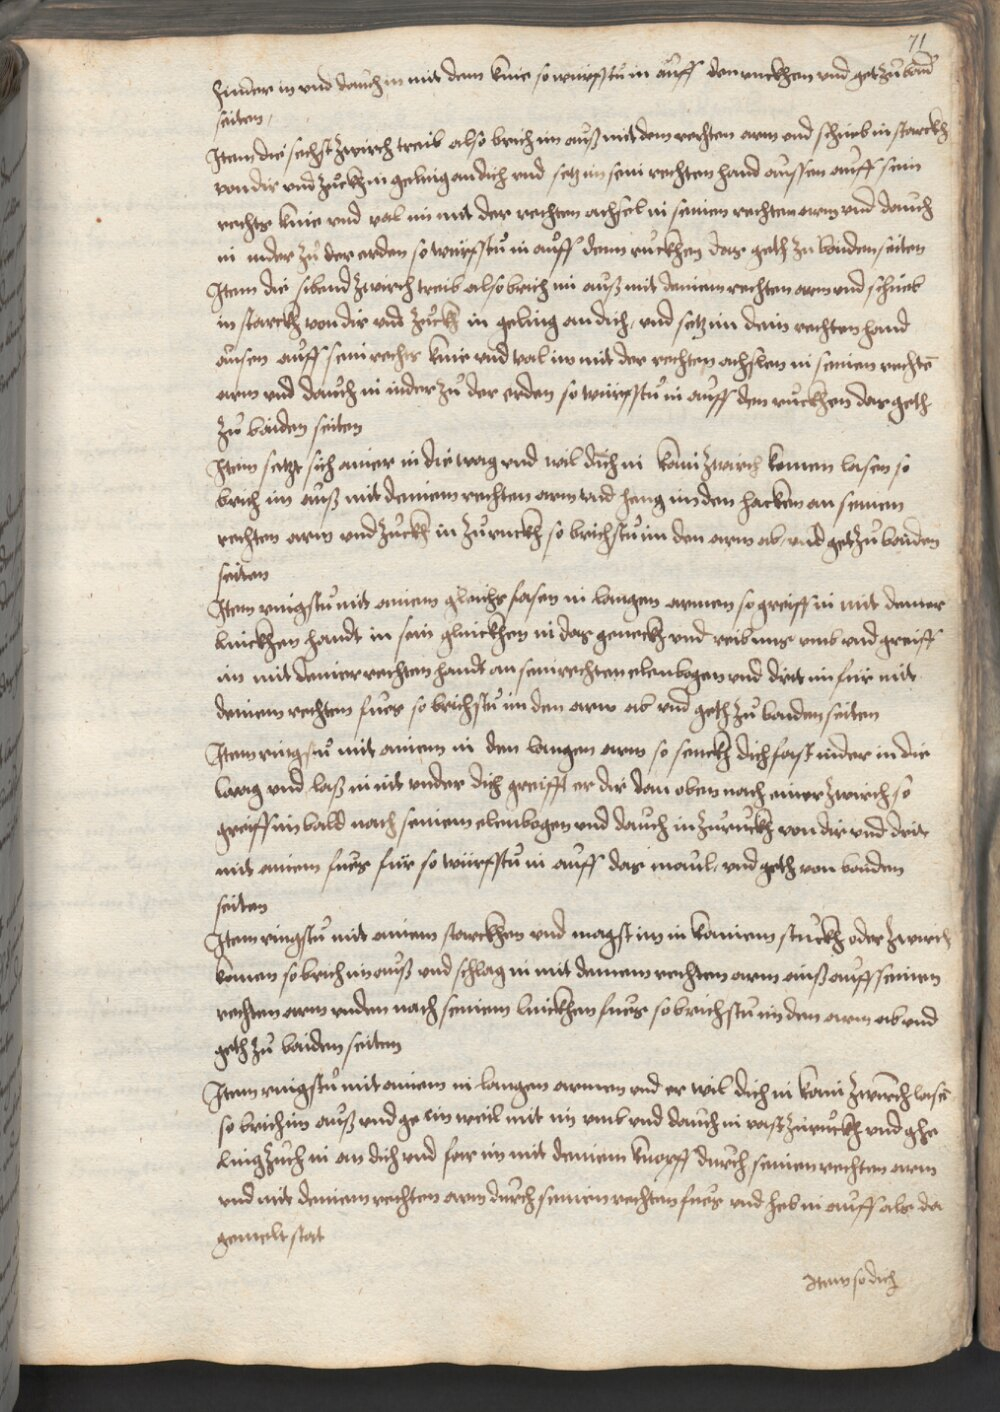 71
hinder in und dauch in mit dem knie so würfstu in auff den ruckhen und get zu baid
seiten
Item die sechst zwirch treib also brich im auß mit dem rechten arm und schieb in starckh
von dir und zuckh in geling an dich und setz im sein rechten hand aussen auff sein
rechts knie und val im mit der rechten achsel in seinen rechten arm und dauch
in nider zu der erden so würfstu in auff denn ruckhen das geth zu baiden seiten
Item die sibend zwirch treib also brich im auß mit deinem rechten arm und schieb
in starckh von dir und zuckh in geling an dich und setz im dein rechten hand
ausen auff sein rechts knie und val im mit der rechten achslen in seinen rechtē
arm und dauch in nider zu der erden so würfstu in auff den ruckhen das geth
zu baiden seiten
Item setzt sich ainer in die wag und wil dich in kain zwirch komen lasen so
brich im auß mit deinem rechten arm und heng im den hacken an seinen
rechten arm und zuckh in zuruckh so brichstu im den arm ab und get zu baiden
seiten
Item ringstu mit ainem gleichs fasen in langen armen so greiff in mit deiner
linckhen handt in sein glinckhen in das geneckh und reib ims umb und greiff
im mit deiner rechten handt an sein rechten elenbogen und drit im für mit
deinem rechten fues so brichstu im den arm ab und geth zu baiden seiten
Item ringstu mit ainem in den langen arm so senckh dich fast nider in die
waag und laß in nit under dich greifft er dir dan oben nach einer zwirch so
greiff im bald nach seinem elenbogen und dauch in zuruckh von dir und drit
mit ainem fues für so würfstu in auff das maul und geth von baiden
seiten
Item ringstu mit ainem starckhen und magst im in kainem stuckh oder zwirch
komen so brich im auß und schlag in mit deinem rechten arm auß auff seinen
rechten arm unden nach seinem linckhen fues so brichstu im den arm ab und
geth zu baiden seiten
Item ringstu mit ainem in langen armen und er wil dich in kain zwirch lasē
so brich im auß und ge ein weil mit im umb und dauch in vast zuruckh und ghe
ling zuch in an dich und far im mit deinem knopff durch seinen rechten arm
und mit deinem rechten arm durch seinen rechten fues und heb in auff als da
gemelt stat
Item so dich